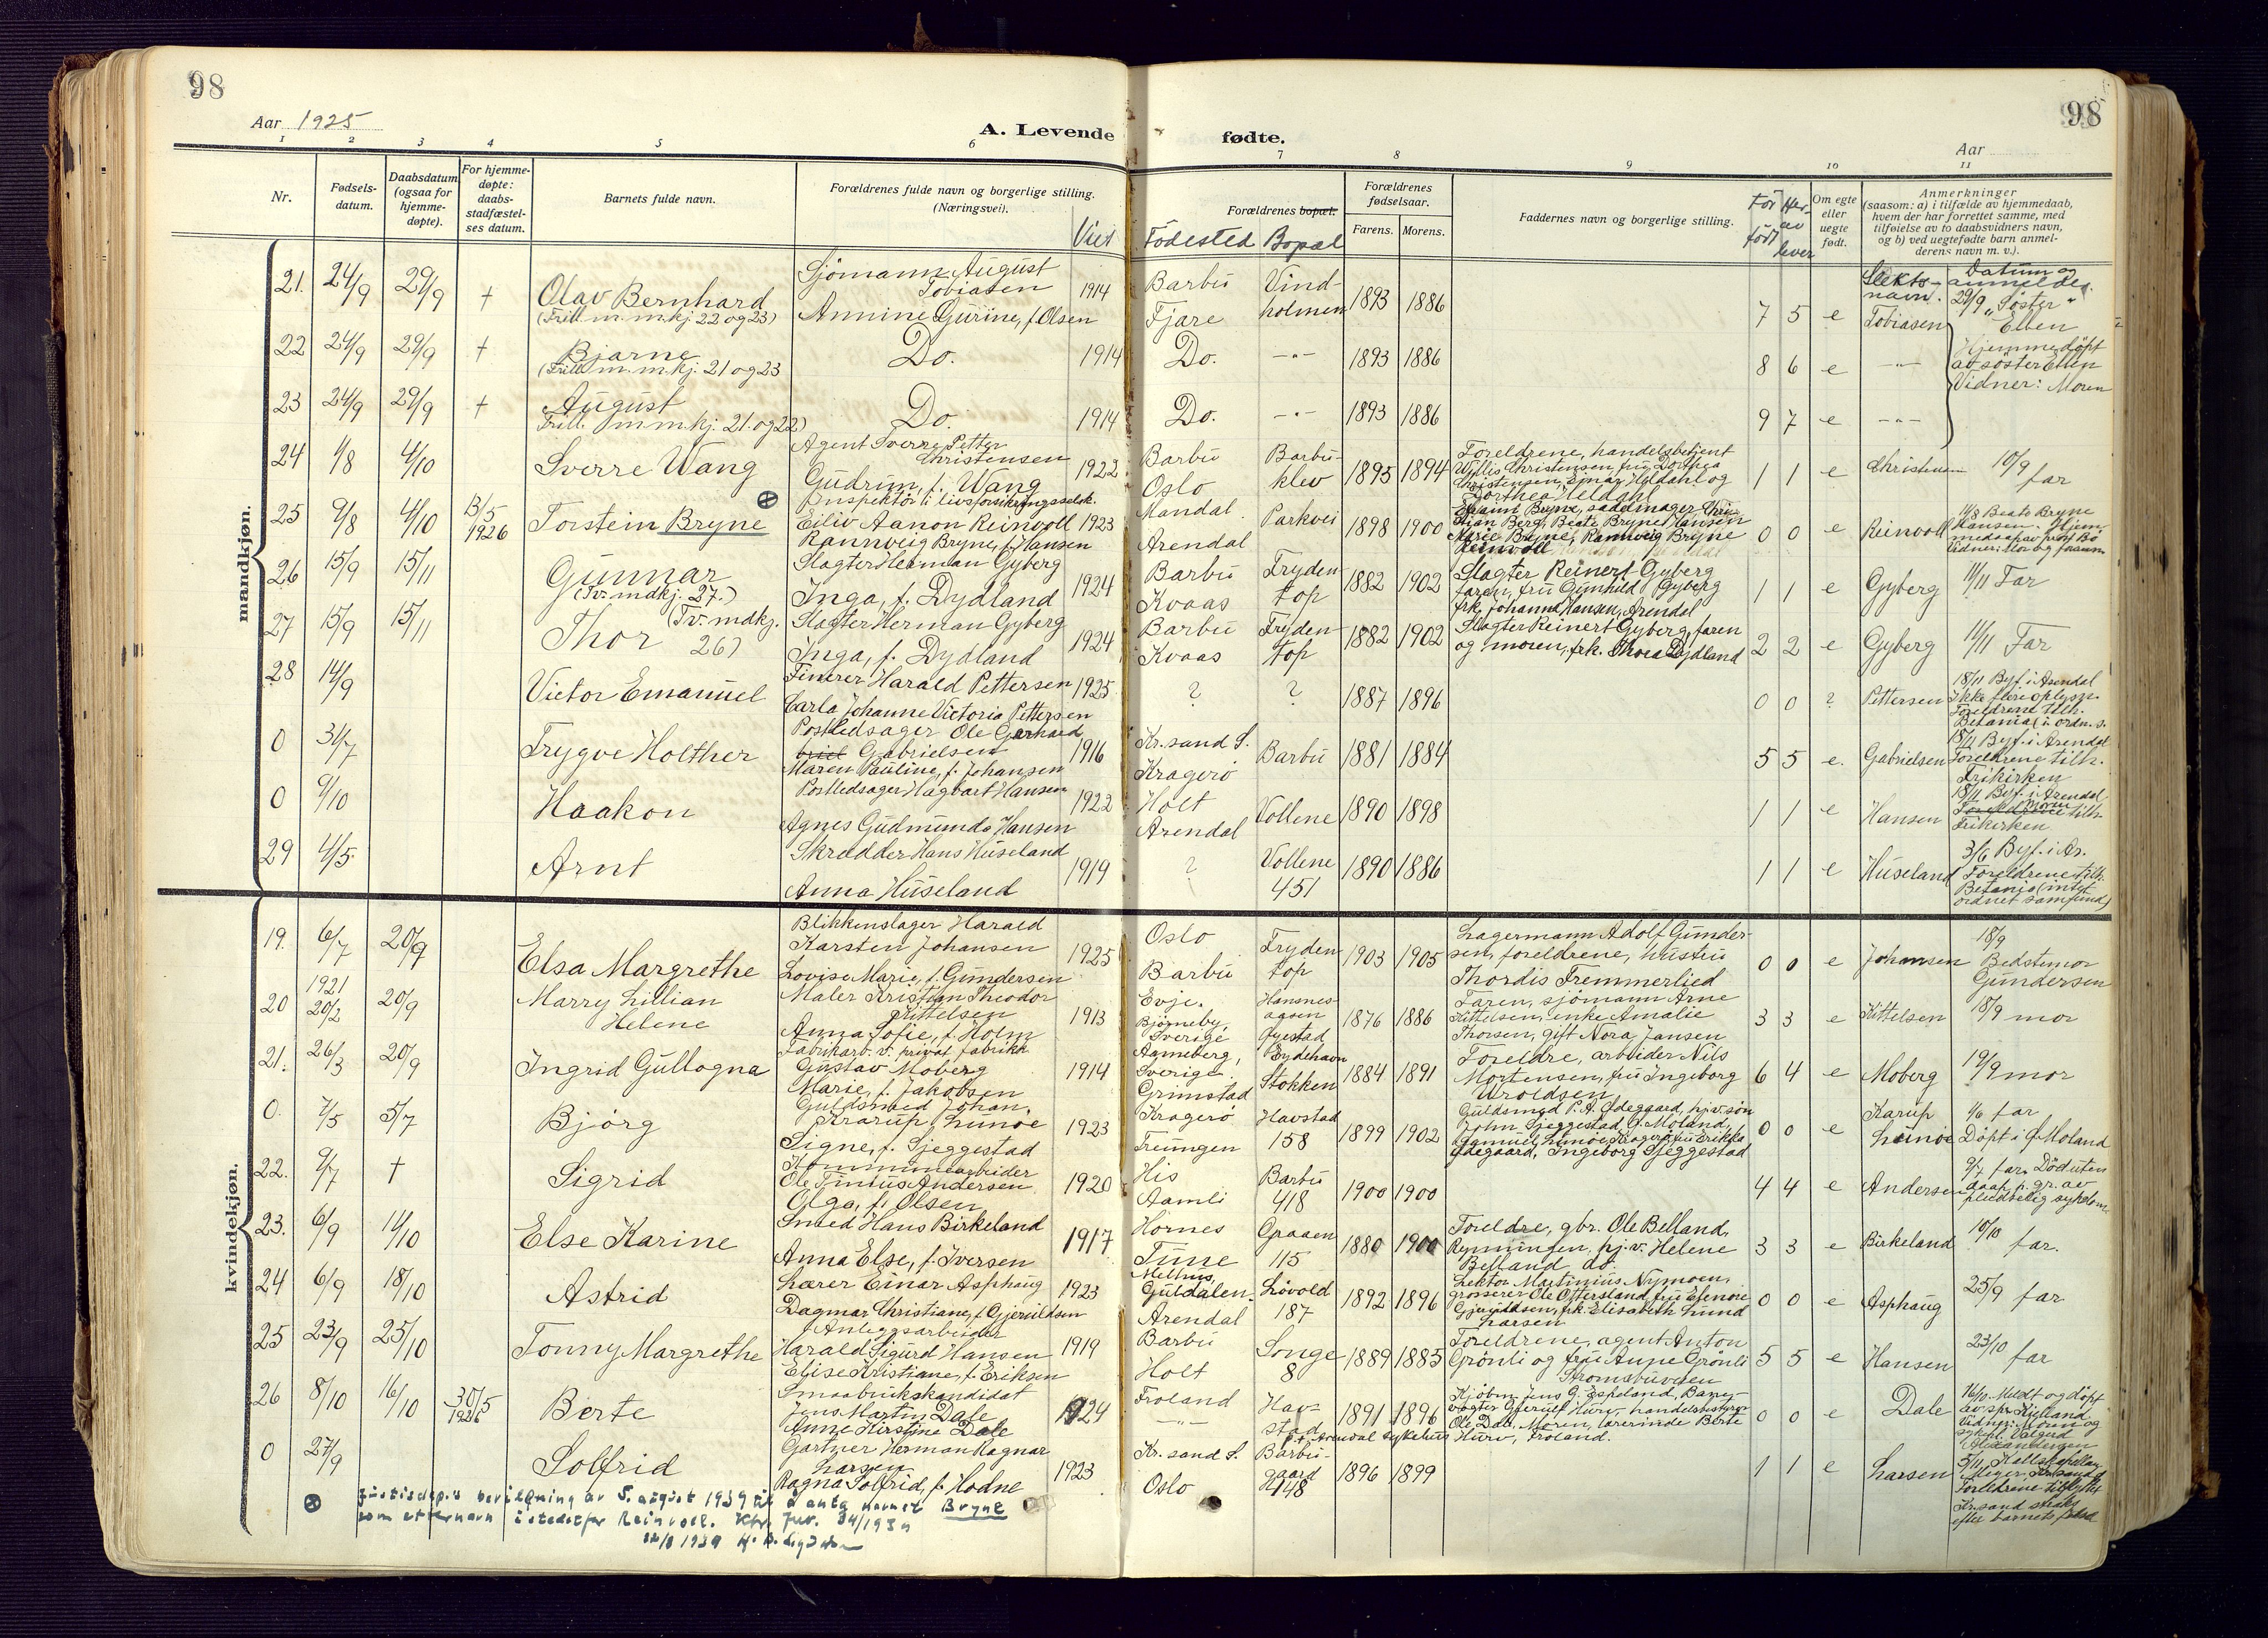 98
98
Aar 1925
A. Levende
fødte.
Aar
1 2 3 4 5 6 7 8 9 10 11
Nr.
Fødsels-
datum.
Daabsdatum
(ogsaa for
hjemme-
døpte).
For hjemme-
døpte:
daabs-
stadfæstel-
ses datum.
Barnets fulde navn.
Forældrenes fulde navn og borgerlige stilling.
(Næringsvei).
Viet
Forældrenes bopæl.
Födested Bopæl
Forældrenes
fødselsaar.
Farens. Morens.
Faddernes navn og borgerlige stilling.
För
födt
Her-
av
lever
Om egte
eller
uegte
født.
Anmerkninger
(saasom: a) i tilfælde av hjemmedaab,
hvem der har forrettet samme, med
tilføielse av to daabsvidners navn,
og b) ved uegtefødte barn anmel-
derens navn m. v.).
mandkjøn.
Slekts-
navn.
Datum og
anmelder.
21. 24/9 29/9 + Olav Bernhard
(Trill. m. m.kj. 22 og 23)
Sjömann August
Tobiasen
Annine Gurine, f. Olsen
1914
Barbu
Fjære
Vind-
holmen
1893 1886
7 5 e Tobiasen
29/9 Söster
Ellen
22 24/9 29/9 + Bjarne
(Trill. m. m.kj. 21 og 23
Do. 1914 Do. -"- 1893 1886
8 6 e -"-
Hjemmedöpt
av söster Ellen
Vidner: Moren
23 24/9 29/9 + August
Trill. m m.kj. 21. og 22)
Do. 1914 Do. -"- 1893 1886
9 7 e -"-
24 1/8 4/10 Sverre Wang
Agent Sverre Petter
Christensen
Gudrun, f. Wang
1922
Barbu
Oslo
Barbu-
klev
1895 1894
Foreldrene, handelsbetjent
Christensen, fru Dorthea
Christensen, Einar Heldahl og
Dorthea Heldahl
1 1 e
10/9
far
25 9/8 4/10 13/5
1926
Torstein Bryne
Inspektör i livsforsikringsselsk.
Eiliv Aanon Reinvoll
Rannveig Bryne, f. Hansen
1923
Mandal.
Arendal
Parkvei
1898 1900
Bryne, sadelmager
Berg, Beate Bryne Hansen
Marie Bryne, Rannveig Bryne
Reinvoll
0 0 e Reinvoll
11/8 Beate Bryne
Hansen.
26 15/9 15/11 Gunnar
(Tv. mdkj. 27.)
Slagter Herman Gyberg
Inga, f. Dydland
1924
Barbu
Kvaas
Fryden-
top
1882 1902
Slagter Reinert Gyberg
faren, fru Gunhild Gyberg
frk. Johanna Hansen, Arendal
1 1 e Gyberg 11/11 Far
27 15/9 15/11 Thor
(Tv. mdkj.
26)
Slagter Herman Gyberg
Inga, f. Dydland
1924
Barbu
Kvaas
Fryden-
top
1882 1902
Slagter Reinert Gyberg, faren
og moren, frk. Thora Dydland
2 2 e Gyberg 11/11 Far
28 14/9 Victor Emanuel
Finerer Harald Pettersen
Carla Johanne Victoria Pettersen
1925
? ? 1887 1896
0 0 ? Pettersen
18/11 Byf. i Arendal
Ikke flere oplysn.
Foreldrene tilh.
Betania (i ordn. s.
0 31/7 Trygve Holther
Postledsager Ole Gerhard
Gabrielsen
Maren Pauline, f. Johansen
1916
Kr.sand S.
Kragerö
Barbu
1881 1884
5 5 e. Gabrielsen
18/11 Byf. i Arendal
Foreldrene tilh.
Frikirken
0 9/10 Haakon
Postledsager Hagbart Hansen
Agnes Gudmunda Hansen
1922
Holt
Arendal
Vollene
1890 1898
1 1 e Hansen
18/11 Byf. i Arendal
Moren tilh.
Frikirken
29 4/5. Arnt
Skrædder Hans Huseland
Anna Huseland
1919
?
Vollene
451
1890 1886
1 1 e Huseland
3/6 Byf. i Ar.
Foreldrene tilh.
Betania (intet
ordnet samfund)
kvindekjøn.
19. 6/7 20/9 Elsa Margrethe
Blikkenslager Harald
Karsten Johansen
Lovise Marie, f. Gundersen
1925
Oslo
Barbu
Fryden-
top
1903 1905
Lagermann Adolf Gunder-
sen, foreldrene, hustru
Thordis Tremmerlied
0 0 e Johansen
18/9
Bedstemor
Gundersen
20 1921
20/2 20/9 Marry Lillian
Helene
Maler Kristian Theodor
Kittelsen
Anna Sofie, f. Holm
1913
Evje.
Bjørneby,
Sverige
Øyestad
1876 1886
Faren, sjömann Arne
Kittelsen, enke Amalie
Thorsen, gift Nora Jansen
3 3 e Kittelsen 18/9 mor
21. 26/3 20/9 Ingrid Gullogna
Fabrikarb. v. privat fabrikk
Gustav Moberg
Marie, f. Jakobsen
1914
Sverige.
Grimstad
Eydehavn
Stokken
1884 1891
Foreldre, arbeider Nils
Mortensen, fru Ingeborg
Uroldsen
6 4 e Moberg 19/9 mor
0. 7/5 5/7 Bjørg
Guldsmed Johan
Krarup Lunöe
Signe, f. Sjeggestad
1923
Kragerö
Treungen
Havstad
158
1899 1902
Guldsmed P. A. Ödegaard,
John Sjeggestad, G. Moland,
Samuel Lunöe, Kragerö, fru Erikka
Ödegaard, Ingeborg Sjeggestad
0 0 e Karup
Lunöe
1/6 far
Döpt i G. Moland
22. 9/7 + Sigrid
Kommunearbeider
Ole Tinius Andersen
Olga, f. Olsen
1920
His
Aamli
Barbu
418
1900 1900
4 4 e Andersen
9/7 far. Död uten
daap p. gr. av
23. 6/9 11/10 Else Karine
Smed Hans Birkeland
Anna Else, f. Iversen
1917
Hornes
Time
Graaen
115
1880 1900
Foreldre, gbr. Ole Belland,
Rynningen, hj.v. Helene
Belland do.
3 3 e Birkeland
10/10
far.
24 6/9 18/10 Astrid
Lærer Einar Asphaug
Dagmar Christiane, f. Gjeruldsen
1923
Melhus,
Guldalen.
Arendal
Lövold
187
1892 1896
Lektor Martinius Nymoen,
grosserer Ole Ottersland, fru Elenore
Gjeruldsen, frk. Elisabeth Lund
Larsen
0 0 e Asphaug 25/9 far
25 23/9 25/10 Tonny Margrethe
Anleggsarbeider
Harald Sigurd Hansen
Elise Kristiane, f. Eriksen
1919
Barbu
Holt
Songe
8
1889 1885
Foreldrene, agent Anton
Grönli og frue Anne Grönli
Strömsbuveien
5 5 e Hansen
23/10
far
26 8/10 16/10 30/5
1926
Berte
Smaabrukskandidat
Jens Martin Dale
Anne Kirstine Dale
1924
Froland
-"-
Hav-
stad
p.t. Arendal sykehus
1891 1896
Kjöbm. Jens G. Espeland,
Ole Dale. Moren, lærerinde Berte
Hurv, Froland.
0 0 e Dale
16/10. Meldt og döpt
av spr. Kielland
Vidner: Moren og
0 27/9 Solfrid
Gartner Herman Ragnar
Larsen
Ragna Solfrid, f. Hodne
1923
Kr.sand S.
Oslo
Barbu-
gaard
148
1896 1899
1 1 e Larsen
Foreldrene tilflyttet
Kr.sand straks
efter barnets födsel
Justisdep.s bevillning av 5. august 1939 til å anta navnet Bryne
som etternavn istedetfor Reinvoll. Kfr. Jnr. 34/1939